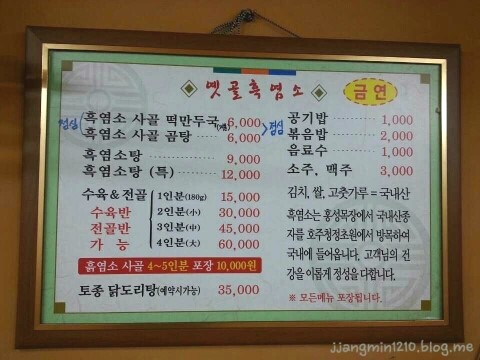 옛골흑염소
금연
점심
흑염소 사골 떡만두국 6,000
흑염소 사골 곰탕 6,000
점심
흑염소탕 9,000
흑염소탕 (특) 12,000
수육&전골 1인분(180g) 15,000
수육반 2인분(小) 30,000
전골반 3인분(中) 45,000
가 능 4인분(大) 60,000
흙염소 사골 4~5인분 포장 10,000원
토종 닭도리탕(예약시가능) 35,000
공기밥 1,000
볶음밥 2,000
음료수 1,000
소주, 맥주 3,000
김치, 쌀, 고춧가루 = 국내산
흑염소는 홍성목장에서 국내산종
자를 호주청정초원에서 방목하여
국내에 들어옵니다. 고객님의 건
강을 이롭게 정성을 다합니다.
※ 모든메뉴 포장됩니다.
jjangmin1210.blog.me